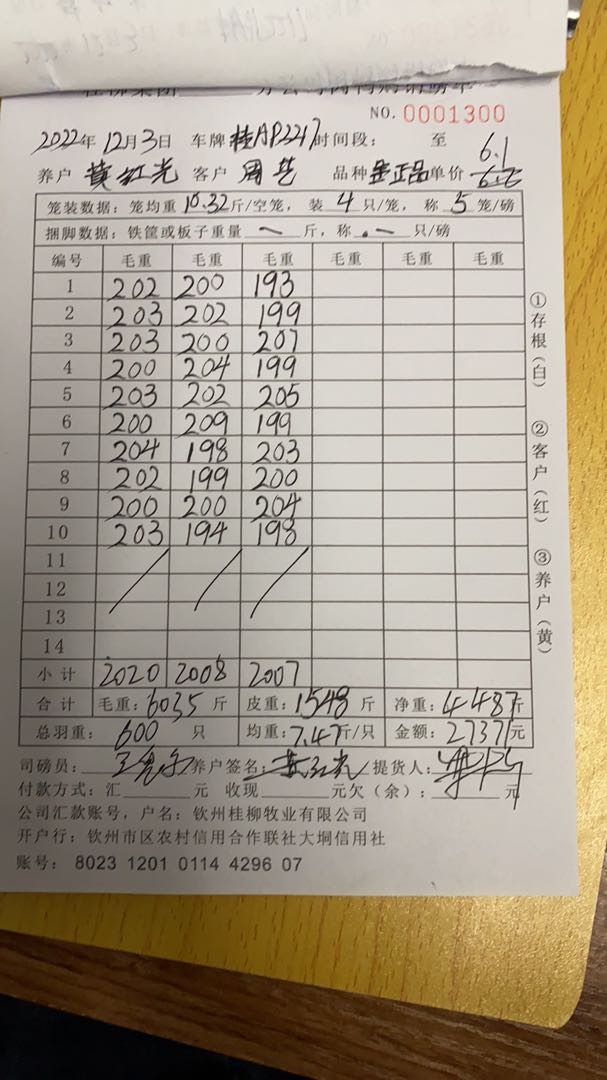 NO. 0001300
2022年 12月3日 车牌 桂AP2217 时间段: 至
6.1
养户 黄红光 客户 周艺 品种 正品 单价
笼装数据: 笼均重 10.32 斤/空笼, 装 4 只/笼, 称 5 笼/磅
捆脚数据: 铁筐或板子重量 一 斤, 称 一 只/磅
编号 毛重 毛重 毛重 毛重 毛重 毛重
1 202 200 193
2 203 202 199
3 203 200 207
4 200 204 199
5 203 202 205
6 200 209 199
7 204 198 203
8 202 199 200
9 200 200 204
10 203 194 198
11
12
13
14
小计 2020 2008 2007
合计 毛重: 6035 斤 皮重: 1548 斤 净重: 4487 斤
总羽重: 600 只 均重: 7.47 斤/只 金额: 27371 元
司磅员: 养户签名: 黄红光 提货人:
付款方式: 汇 元 收现 元欠(余): 元
公司汇款账号, 户名: 钦州桂柳牧业有限公司
开户行: 钦州市区农村信用合作联社大垌信用社
账号: 8023 1201 0114 4296 07
①存根(白)
②客户(红)
③养户(黄)